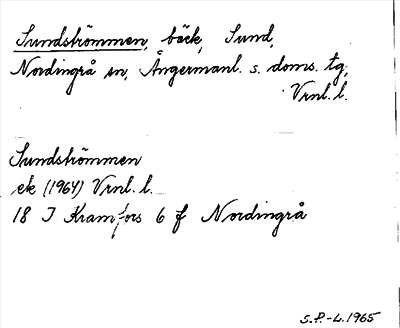 Sundströmmen, bäck, Sund,
Nordingrå sn, Ångermanl. s. doms. tg,
Vrnl. l.
Sundströmmen
ek (1964) Vrnl. l.
18 I Kramfors 6 f Nordingrå
S.P.-L. 1965